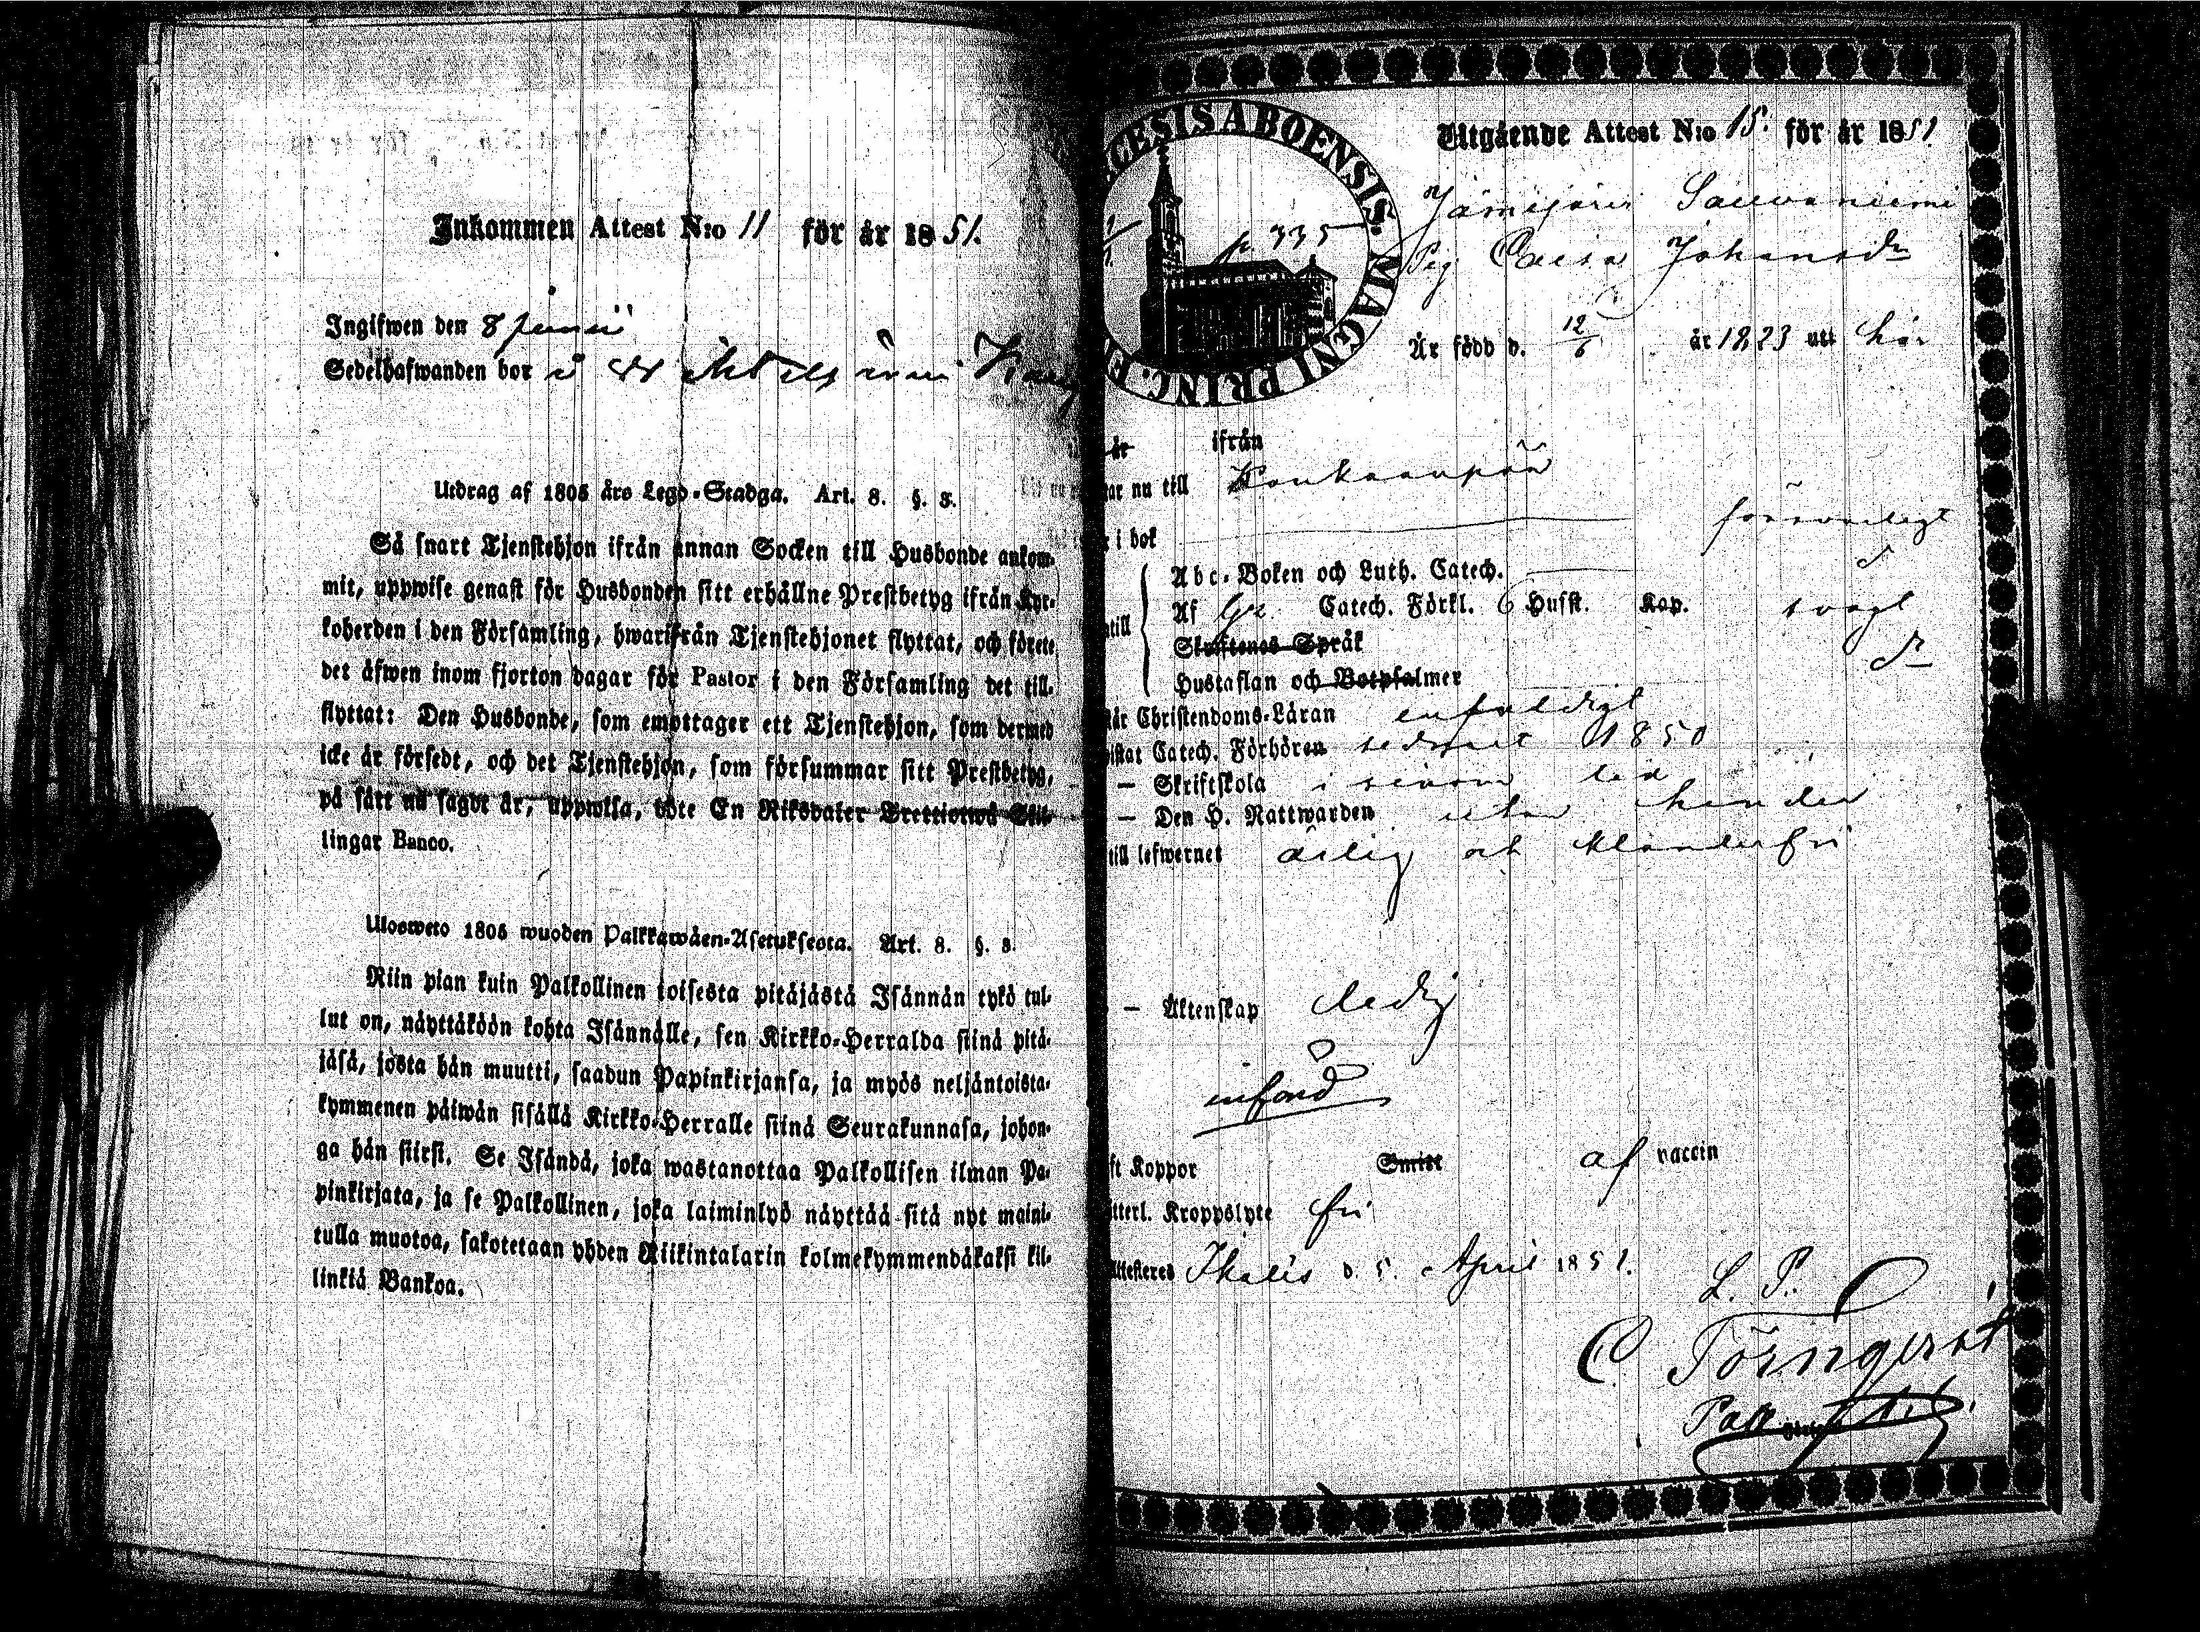 Inkommen Attest N:o 11 för år 1851.
Ingifwen den 8 Junii
Sedelhafwanden bor i
Utdrag af 1805 års Lego-Stadga. Art. 8. §. 3.
Så snart Tjenstehjon ifrån annan Socken till Husbonde ankom-
mit, uppwise genast för Husbonden sitt erhållne Prestbetyg ifrån Kyr-
koherden i den Församling, hwarifrån Tjenstehjonet flyttat, och förete
det äfwen inom fjorton dagar för Pastor i den Församling det till-
flyttat: Den Husbonde, som emottager ett Tjenstehjon, som dermed
icke är försedt, och det Tjenstehjon, som försummar sitt Prestbetyg,
på sätt nu sagdt är, uppwisa, böte En Riksdaler Trettiotwå Skil-
lingar Banco.
Ulosweto 1805 wuoden Palkkawäen-Asetuksesta. Art. 8. §. 3.
Niin pian kuin Palkollinen toisesta pitäjästä Isännän tykö tul-
lut on, näyttäköön kohta Isännälle, sen Kirkko-Herralda siinä pitä-
jäsä, josta hän muutti, saadun Papinkirjansa, ja myös neljäntoista-
kymmenen päiwän sisällä Kirkko-Herralle siinä Seurakunnasa, johon-
ga hän siirsi. Se Isändä, joka wastanottaa Palkollisen ilman Pa-
pinkirjata, ja se Palkollinen, joka laiminlyö näyttää sitä nyt maini-
tulla muotoa, sakotetaan yhden Riikintalarin kolmekymmendäkaksi kil-
linkiä Bankoa.
CESIS ABOENSIS. MAGNI PRINC.
p. 335
Utgående Attest N:o 15. för år 1851.
Jämijärvi Sauvaniemi
Pig Caisa Johansdr
Är född d. 12/6 år 1823 utt här
ifrån
nu till Kankaanpää
i bok försvarligt
Abc-Boken och Luth. Catech. d
Af Catech. Förkl. 6 Husst. Kap. svagt
Skriftenes Språk d
Hustaflan och Botpsalmer
Christendoms-Läran enfaldigt
Catech. Förhören sednast 1850
— Skriftskola i sinom tid
— Den H. Nattwarden utan hinder
till lefwernet ärlig och klanderfri
— Äktenskap ledig
införd
Koppor Smitt af vaccin
Kroppslyte fri
Attesteres Ikalis d. 5. April 1851.
L. P.
C Törnqvist